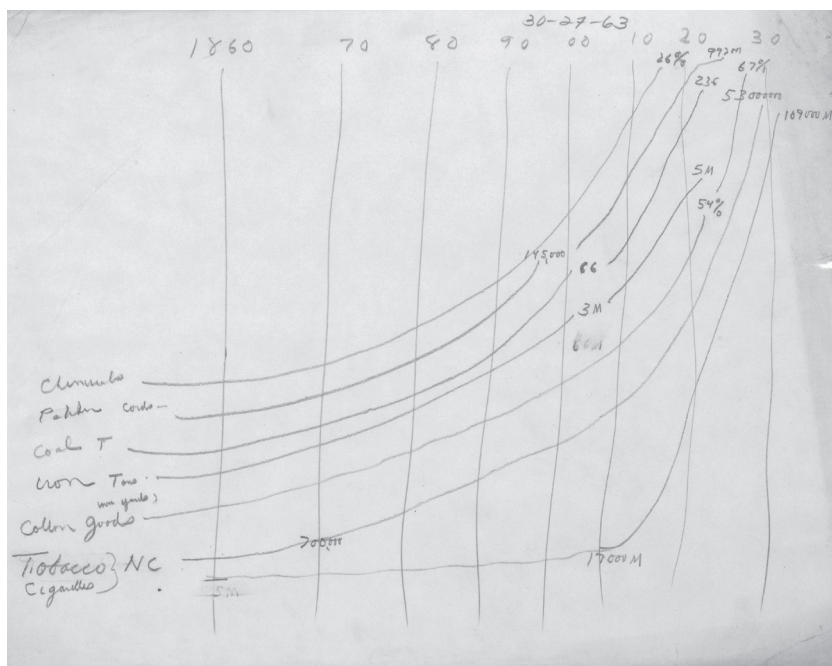 30-27-63
1860 70 80 90 00 10 20 30
26% 992M 67%
236 530000m
109000M
5M
54%
145,000 66
3M
60M
Chemicals
Cords —
Coal T
Iron Tons.
Cotton goods
700,
Tobacco } NC
Cigarettes
17000M
5M